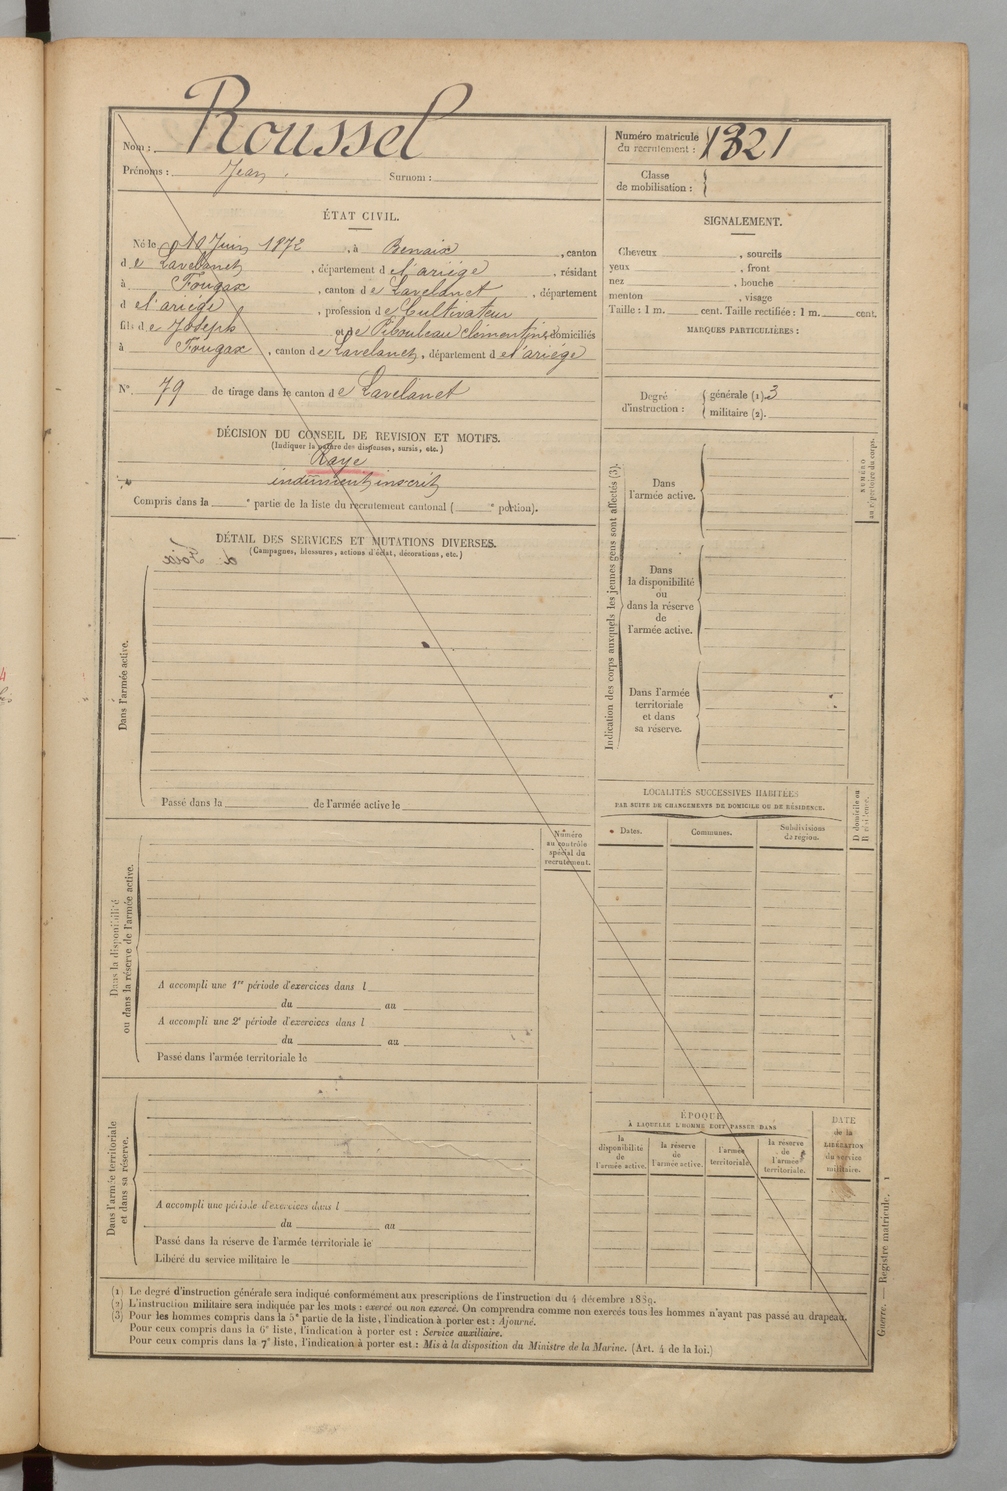 Nom : Roussel
Prénoms : Jean Surnom :
Numéro matricule
du recrutement : 1321
Classe
de mobilisation :
ÉTAT CIVIL.
Né le 10 Juin 1872, à Benaix, canton
de Lavelanet, département de l'ariége, résidant
à Fougax, canton de Lavelanet, département
de l'ariége, profession de Cultivateur
fils de Joseph et de Pibouleau clémentine, domiciliés
à Fougax, canton de Lavelanet, département de l'ariége
N°. 79 de tirage dans le canton de Lavelanet
DÉCISION DU CONSEIL DE REVISION ET MOTIFS.
(Indiquer la nature des dispenses, sursis, etc.)
Rayé
indûment inscrit
Compris dans la e partie de la liste du recrutement cantonal ( e portion).
DÉTAIL DES SERVICES ET MUTATIONS DIVERSES.
(Campagnes, blessures, actions d'éclat, décorations, etc.)
Dans l'armée active.
Passé dans la de l'armée active le
Numéro
au contrôle
spécial du
recrutement.
Dans la disponibilité
ou dans la réserve de l'armée active.
A accompli une 1re période d'exercices dans l
du au
A accompli une 2e période d'exercices dans l
du au
Passé dans l'armée territoriale le
Dans l'armée territoriale
et dans sa réserve.
A accompli une période d'exercices dans l
du au
Passé dans la réserve de l'armée territoriale le
Libéré du service militaire le
SIGNALEMENT.
Cheveux, sourcils
yeux, front
nez, bouche
menton, visage
Taille : 1 m. cent. Taille rectifiée : 1 m. cent.
MARQUES PARTICULIÈRES :
Degré
d'instruction :
générale (1). 3
militaire (2).
Indication des corps auxquels les jeunes gens sont affectés (3).
NUMÉRO
au répertoire du corps.
Dans
l'armée active.
Dans
la disponibilité
ou
dans la réserve
de
l'armée active.
Dans l'armée
territoriale
et dans
sa réserve.
LOCALITÉS SUCCESSIVES HABITÉES
PAR SUITE DE CHANGEMENTS DE DOMICILE OU DE RÉSIDENCE.
D domicile ou
R résidence.
Dates. Communes. Subdivisions
de région.
ÉPOQUE
À LAQUELLE L'HOMME DOIT PASSER DANS
la
disponibilité
de
l'armée active.
la réserve
de
l'armée active.
l'armée
territoriale.
la réserve
de
l'armée
territoriale.
DATE
de la
LIBÉRATION
du service
militaire.
(1) Le degré d'instruction générale sera indiqué conformément aux prescriptions de l'instruction du 4 décembre 1889.
(2) L'instruction militaire sera indiquée par les mots : exercé ou non exercé. On comprendra comme non exercés tous les hommes n'ayant pas passé au drapeau.
(3) Pour les hommes compris dans la 5e partie de la liste, l'indication à porter est : Ajourné.
Pour ceux compris dans la 6e liste, l'indication à porter est : Service auxiliaire.
Pour ceux compris dans la 7e liste, l'indication à porter est : Mis à la disposition du Ministre de la Marine. (Art. 4 de la loi.)
Guerre. — Registre matricule. 1